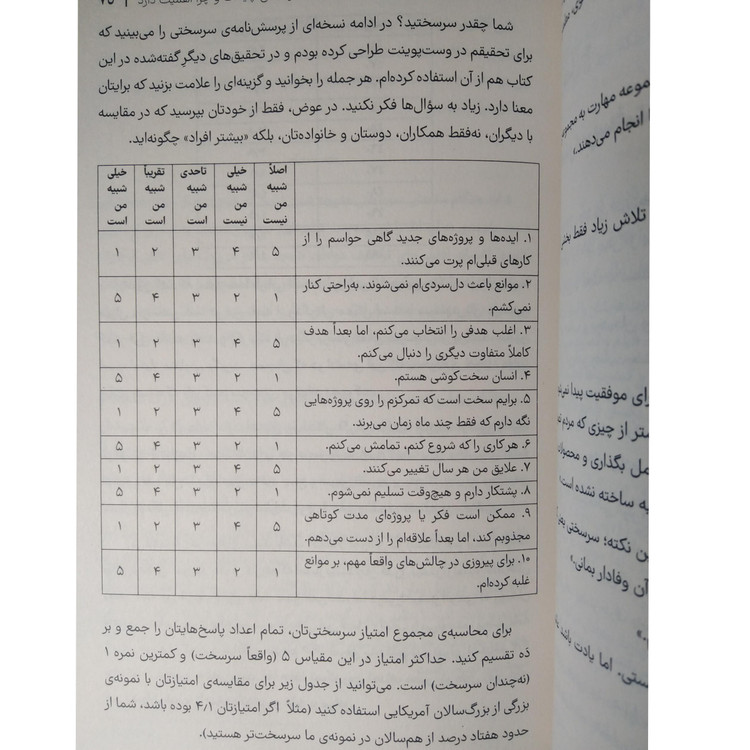 شما چقدر سرسختید؟ در ادامه نسخه‌ای از پرسش‌نامه‌ی سرسختی را می‌بینید که
برای تحقیقم در وست‌پوینت طراحی کرده بودم و در تحقیق‌های دیگرِ گفته‌شده در این
کتاب هم از آن استفاده کرده‌ام. هر جمله را بخوانید و گزینه‌ای را علامت بزنید که برایتان
معنا دارد. زیاد به سؤال‌ها فکر نکنید. در عوض، فقط از خودتان بپرسید که در مقایسه
با دیگران، نه‌فقط همکاران، دوستان و خانواده‌تان، بلکه «بیشتر افراد» چگونه‌اید.
اصلاً شبیه من نیست	خیلی شبیه من نیست	تاحدی شبیه من است	تقریباً شبیه من است	خیلی شبیه من است
۱. ایده‌ها و پروژه‌های جدید گاهی حواسم را از
کارهای قبلی‌ام پرت می‌کنند.	۵	۴	۳	۲	۱
۲. موانع باعث دل‌سردی‌ام نمی‌شوند. به‌راحتی کنار
نمی‌کشم.	۱	۲	۳	۴	۵
۳. اغلب هدفی را انتخاب می‌کنم، اما بعداً هدف
کاملاً متفاوت دیگری را دنبال می‌کنم.	۵	۴	۳	۲	۱
۴. انسان سخت‌کوشی هستم.	۱	۲	۳	۴	۵
۵. برایم سخت است که تمرکزم را روی پروژه‌هایی
نگه دارم که فقط چند ماه زمان می‌برند.	۵	۴	۳	۲	۱
۶. هر کاری را که شروع کنم، تمامش می‌کنم.	۱	۲	۳	۴	۵
۷. علایق من هر سال تغییر می‌کنند.	۵	۴	۳	۲	۱
۸. پشتکار دارم و هیچ‌وقت تسلیم نمی‌شوم.	۱	۲	۳	۴	۵
۹. ممکن است فکر یا پروژه‌ای مدت کوتاهی
مجذوبم کند، اما بعداً علاقه‌ام را از دست می‌دهم.	۵	۴	۳	۲	۱
۱۰. برای پیروزی در چالش‌های واقعاً مهم، بر موانع
غلبه کرده‌ام.	۱	۲	۳	۴	۵
برای محاسبه‌ی مجموع امتیاز سرسختی‌تان، تمام اعداد پاسخ‌هایتان را جمع و بر
دَه تقسیم کنید. حداکثر امتیاز در این مقیاس ۵ (واقعاً سرسخت) و کمترین نمره ۱
(نه‌چندان سرسخت) است. می‌توانید از جدول زیر برای مقایسه‌ی امتیازتان با نمونه‌ی
بزرگی از بزرگ‌سالان آمریکایی استفاده کنید (مثلاً اگر امتیازتان ۴/۱ بوده باشد، شما از
حدود هفتاد درصد از هم‌سالان در نمونه‌ی ما سرسخت‌تر هستید).
موعه مهارت به
انجام می‌دهند.»
تلاش زیاد فقط
رای موفقیت پیدا
تر از چیزی که مردم
مل بگذاری و
به ساخته نشده است
ن نکته؛ سرسختی
آن وفادار بمانی.»
ستی. اما یادت باشد